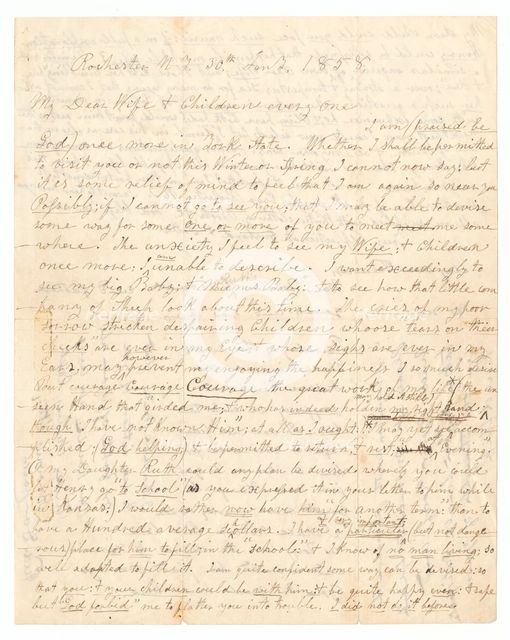 Rochester N Y 30th Jany 1858
My Dear Wife & Children every one
I am (praised be
God) once more in York State. Whether I shall be permitted
to visit you or not this Winter or Spring I cannot now say; but
it is some relief of mind to feel that I am again so near you
Possibly; if I cannot go to see you; that I may be able to devise
some way for some one or more of you to meet me some
where. The anxiety I feel to see my Wife; & Children
once more: I am unable to describe. I want exceedingly to
see my big Baby; & Ruth's Baby: & to see how that little com
pany of Sheep look about this time. The cries of my poor
sorrow stricken despairing Children whoose tears on their
cheeks" are ever in my Eye; & whose sighs are ever in my
Ears; may however prevent my enjoying the happiness I so much desire
But courage Courage Courage the great work of my life (the un
seen Hand that "girded me; & who has indeed holden my right hand may hold it still;
though I have not known Him"; at all as I ought:) I may yet see accom
plished; (God helping;) & be permitted to return, & "rest at Evening."
O my Daughter Ruth could any plan be devised whereby you could
let Henry go "to School" (as you expressed it in your letter to him while
in Kansas;) I would rather now have him for another term: than to
have a Hundred average scholars. I have a particular & very important; (but not dange
rous) place for him to fill; in the "school"; & I know of no man living; so
well adapted to fill it. I am quite confident some way can be devised; so
that you; & your children could be with him; & be quite happy even: & safe
but "God forbid" me to flatter you into trouble. I did not do it before